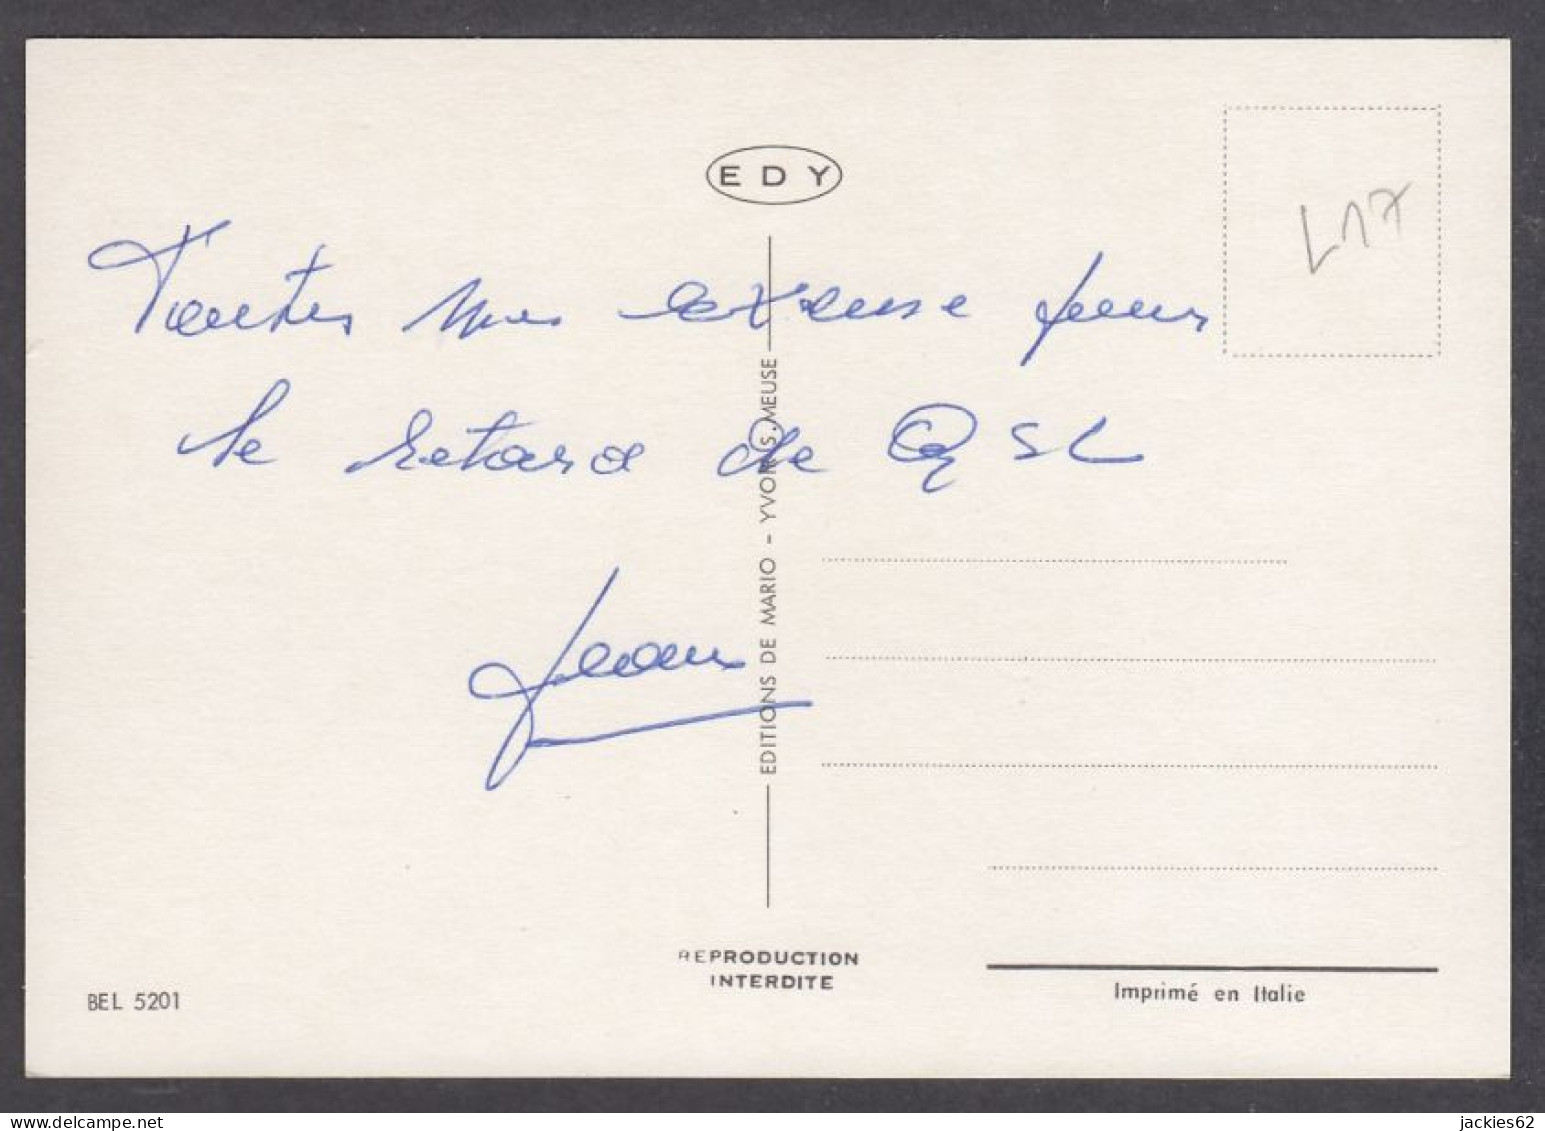 EDY
L17
Toutes mes excuse pour
le retard de QSL
Jean
EDITIONS DE MARIO - YVOIR S. MEUSE
REPRODUCTION
INTERDITE
BEL 5201
Imprimé en Italie
jackies62